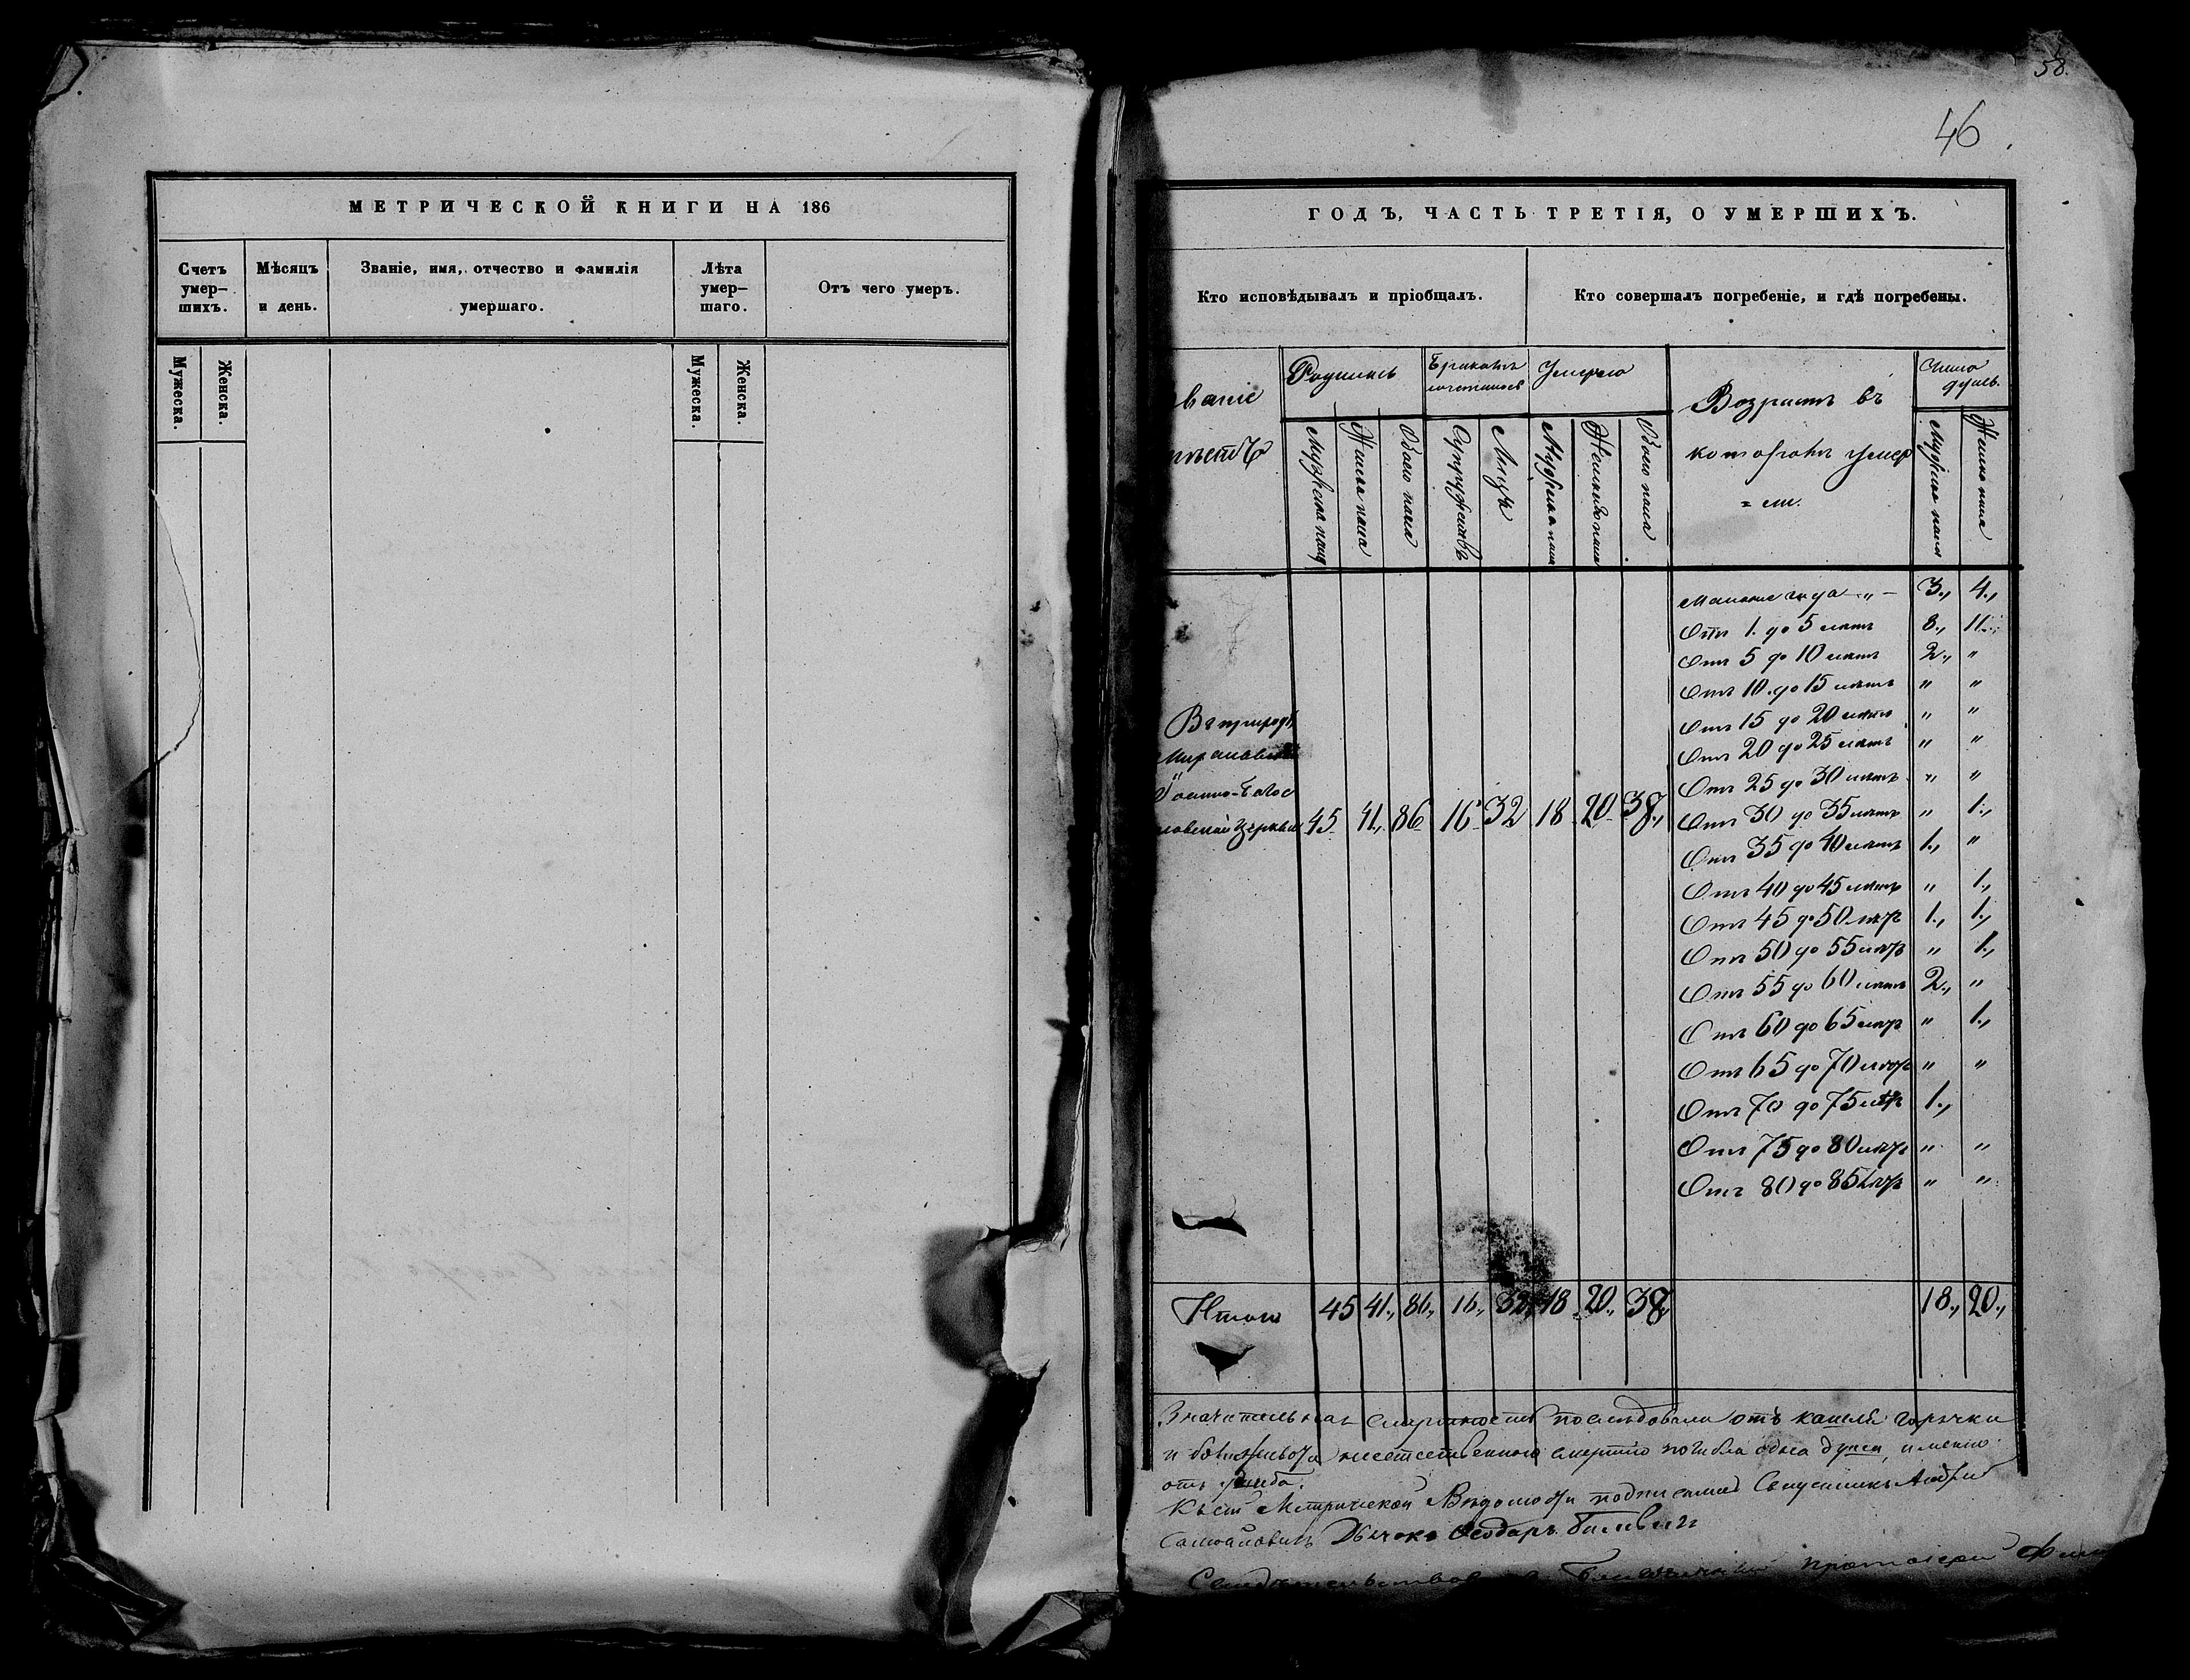 58.
46
МЕТРИЧЕСКОЙ КНИГИ НА 186
Счетъ умер-шихъ.
Мѣсяцъ и день.
Званіе, имя, отчество и фамилія умершаго.
Лѣта умер-шаго.
Отъ чего умеръ.
Мужеска.
Женска.
Мужеска.
Женска.
ГОДЪ, ЧАСТЬ ТРЕТІЯ, О УМЕРШИХЪ.
Кто исповѣдывалъ и пріобщалъ.
Кто совершалъ погребеніе, и гдѣ погребены.
Родилось
Бракомъ
Умерло
Возрастъ въ
которомъ умер
= ли.
Число
душъ.
Мужеска пола
Женска пола
Обоего пола
Супружествъ
Лицъ
Мужеска пола
Женска пола
Обоего пола
Мужска пола
Женска пола
Менѣе года „ 3., 4.,
Отъ 1. до 5 лѣтъ 8., 11.,
Отъ 5 до 10 лѣтъ 2., „
Отъ 10. до 15 лѣтъ „ „
Отъ 15 до 20 лѣтъ „ „
Отъ 20 до 25 лѣтъ „ „
Отъ 25 до 30 лѣтъ „ „
Отъ 30 до 35 лѣтъ „ 1.,
Отъ 35 до 40 лѣтъ 1., „
Отъ 40 до 45 лѣтъ „ 1.,
Отъ 45 до 50 лѣтъ 1., 1.,
Отъ 50 до 55 лѣтъ „ 1.,
Отъ 55 до 60 лѣтъ 2., „
Отъ 60 до 65 лѣтъ „ 1.,
Отъ 65 до 70 лѣтъ „ „
Отъ 70 до 75 лѣтъ 1.,
Отъ 75 до 80 лѣтъ „ „
Отъ 80 до 85 лѣтъ „ „
Іоанно-Богос
ловской Церкви 45 41., 86 16 32 18 20 38.,
Итого 45 41., 86., 16., 32 18 20., 38 18., 20.,
Значительная смертность послѣдовала отъ кашля горячки
неестественною смертію погибла одна душа, именно
отъ
Къ сей Метрической Вѣдомости подписался Священникъ Андрей
Дьячокъ Ѳеодоръ
протоіерей